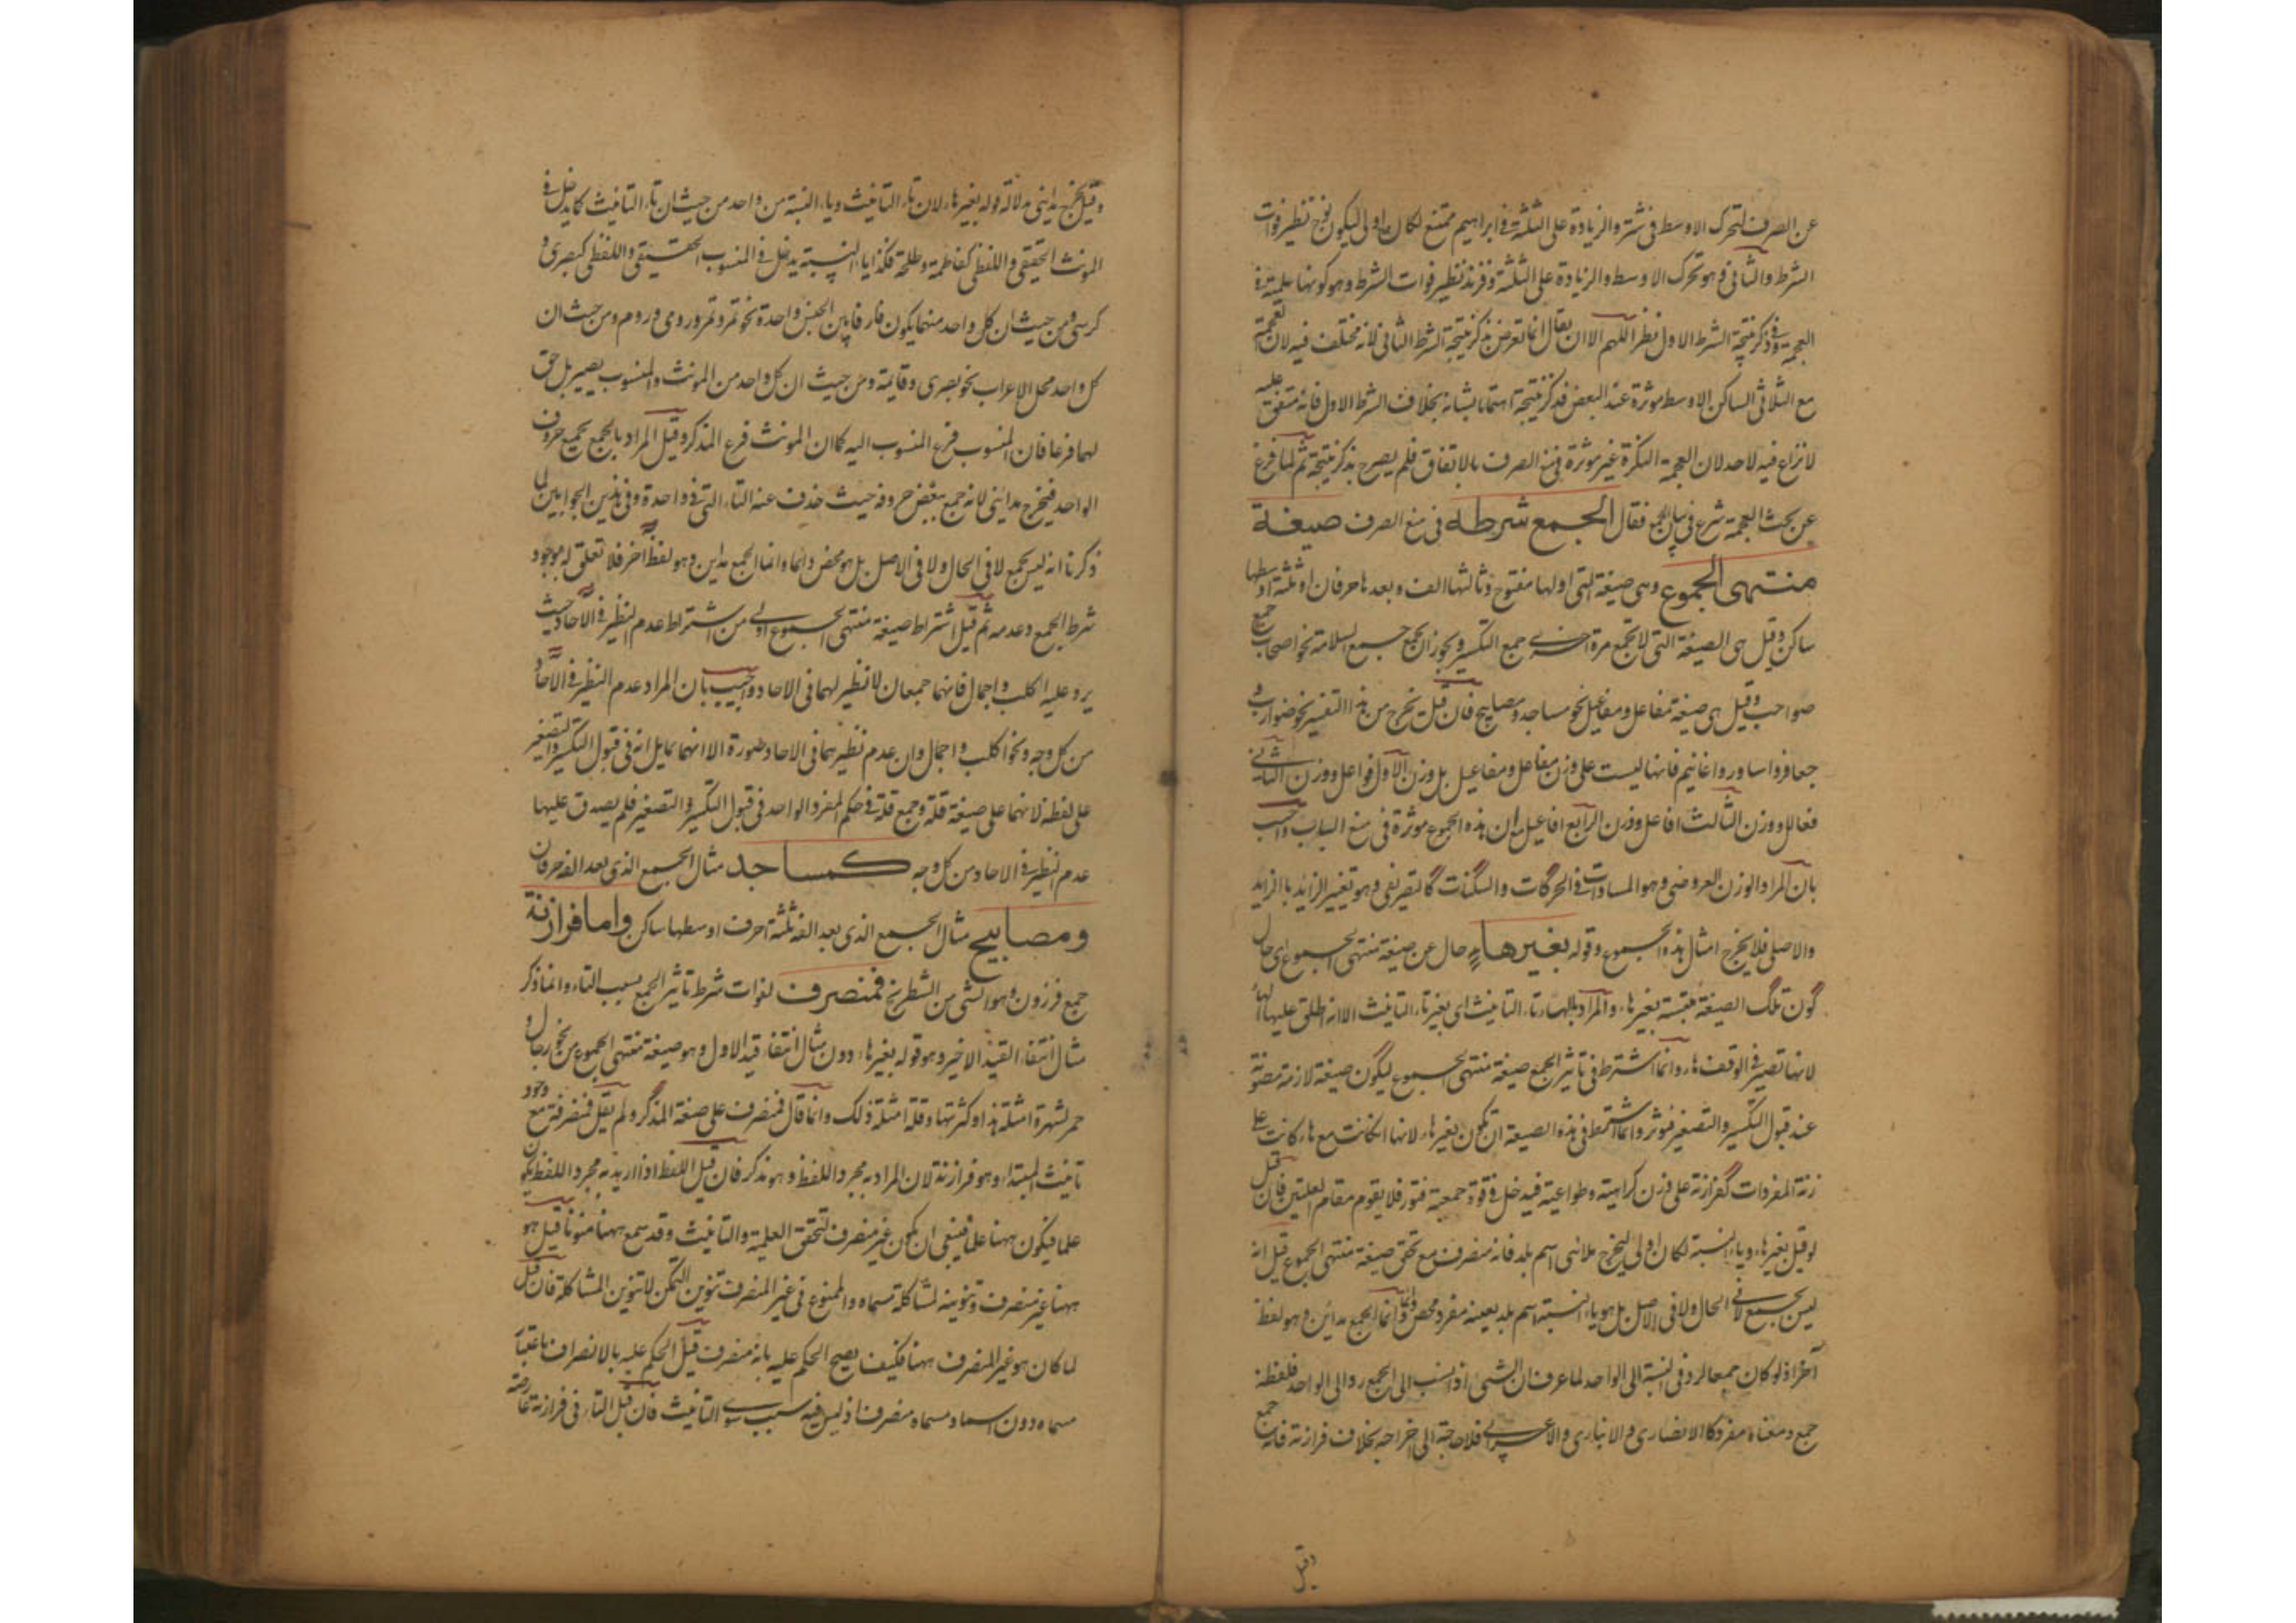 عن الصرف لتحرك الاوسط فى شتر والزيادة على الثلثة فى ابراهيم ممتنع لكان اولى ليكون نوح نظير فوات
الشرط والثانى وهو تحرك الاوسط والزيادة على الثلثة وفرند نظير فوات الشرط وهو كونها علمية فى
العجمة وفى ذكر نتيجة الشرط الاول نظر اللهم الا ان يقال انما تعرض بذكر نتيجة الشرط الثانى لانه مختلف فيه لان العجمة
مع الثلاثى الساكن الاوسط موثرة عند البعض فذكر نتيجة اهتماما بشانه بخلاف الشرط الاول فانه متفق عليه
لا نزاع فيه لاحد لان العجمة النكرة غير موثرة فى منع الصرف بالاتفاق فلم يصرح بذكر نتيجة ثم لما فرغ
عن بحث العجمة شرع فى بيان الجمع فقال الجمع شرطه فى منع الصرف صيغة
منتهى الجموع وهى صيغة التى اولها مفتوح وثالثها الف وبعدها حرفان او ثلثة اوسطها
ساكن وقيل هى الصيغة التى لا تجمع مرة اخرى جمع التكسير ويجوز ان يجمع جمع السلامة نحو اصحاب جمع
صواحب وقيل هى صيغة مفاعل ومفاعيل نحو مساجد ومصابيح فان قلت يخرج من هذا التفسير نحو ضوارب و
جعافر واساور واغانيم فانها ليست على وزن مفاعل ومفاعيل بل وزن الاول فواعل ووزن الثانى
فعالل ووزن الثالث افاعل ووزن الرابع افاعيل مع ان هذه الجموع موثرة فى منع الباب واجيب
بان المراد الوزن العروضى وهو المساوات فى الحركات والسكنات لا التصريفى وهو تغيير الزايد بالزايد
والاصلى فلا يخرج امثال هذه الجموع وقوله بغير هاء حال عن صيغة منتهى الجموع اى حال
كون تلك الصيغة ملتبسة بغير هاء والمراد بالهاء تاء التانيث اى بغير تاء التانيث الا انه اطلق عليها الهاء
لانها تصير فى الوقف هاء وانما اشترط فى تاثير الجمع صيغة منتهى الجموع ليكون صيغة لازمة مصونة
عند قبول التكسير والتصغير فتوثر وانما اشترط فى هذه الصيغة ان تكون بغير هاء لانها ان كانت مع هاء كانت على
زنة المفردات كفرازنة على وزن كراهية وطواعية فيدخل فى قوة جمعية فتور فلا يقوم مقام العلتين فان قيل
لو قيل بغير هاء وياء النسبة لكان اولى ليخرج مداينى اسم بلد فانه منصرف مع تحقق صيغة منتهى الجموع قيل انه
ليس بجمع لا فى الحال ولا فى الاصل بل هو ياء النسبة اسم بلد بعينه مفرد محض دائما وانما الجمع مدائن وهو لفظ
آخر اذ لو كان جمعا لرد فى النسبة الى الواحد لما عرف ان الشئ اذا نسب الى الجمع رد الى الواحد فلفظه
جمع ومعناه مفرد كالانصارى والانبارى والاعرابى فلا حاجة الى اخراجه بخلاف فرازنة فانه جمع
وقيل
وقيل يخرج مداينى بدلالة قوله بغير هاء لان تاء التانيث وياء النسبة من واحد من حيث ان تاء التانيث كما يدخل فى
المونث الحقيقى واللفظى كفاطمة وطلحة فكذا ياء النسبة يدخل فى المنسوب الحقيقى واللفظى كبصرى و
كرسى ومن حيث ان كل واحد منهما يكون فارقا بين الجنس واحدة نحو تمر وتمرة ورومى وروم ومن حيث ان
كل واحد محل الاعراب نحو بصرى وقايمة ومن حيث ان كل واحد من المونث والمنسوب يصير بلحق
لهما فرعا فان المنسوب فرع المنسوب اليه كما ان المونث فرع المذكر وقيل المراد بالجمع جميع حروف
الواحد فيخرج مداينى لانه جمع بعض حروفه حيث حذف عنه التاء التى فى واحدة وفى هذين الجوابين لما
ذكرنا انه ليس بجمع لا فى الحال ولا فى الاصل بل هو محض دائما وانما الجمع مداين وهو لفظ آخر فلا تعلق له بوجود
شرط الجمع وعدمه ثم قيل اشتراط صيغة منتهى الجموع اولى من اشتراط عدم النظير فى الآحاد حيث
يرد عليه اكلب واجمال فانهما جمعان لا نظير لهما فى الاحاد واجيب بان المراد عدم النظير فى الآحاد
من كل وجه ونحو اكلب واجمال وان عدم نظيرهما فى الاحاد صورة الا انهما يماثلانه فى قبول التكسير والتصغير
على لفظه لانهما على صيغة قلة وجمع قلة فى حكم المفرد الواحد فى قبول التكسير والتصغير فلم يصدق عليهما
عدم النظير فى الاحاد من كل وجه كمساجد مثال الجمع الذى بعد الفه حرفان
ومصابيح مثال الجمع الذى بعد الفه ثلثة احرف اوسطها ساكن واما فرازنة
جمع فرزون وهو الشئ من الشطرنج فمنصرف لفوات شرط تاثير الجمع بسبب التاء وانما ذكر
مثال انتفاء القيد الاخير وهو قوله بغير هاء دون مثال انتفاء قيد الاول وهو صيغة منتهى الجموع من نحو رجال و
حمر لشهرة امثلة هذا وكثرتها وقلة امثلة ذلك وانما قال فمنصرف على صيغة المذكر ولم يقل فمنصرفة مع وجود
تانيث المبتدا وهو فرازنة لان المراد به مجرد اللفظ وهو مذكر فان قيل اللفظ اذا اريد به مجرد اللفظ يكون
علما فيكون ههنا علما فينبغى ان يكون غير منصرف لتحقق العلمية والتانيث وقد سمع ههنا منونا قيل هو
ههنا غير منصرف وتنوينه لمشاكلة مسماه والممنوع فى غير المنصرف تنوين التمكن لا تنوين المشاكلة فان قيل
لما كان هو غير المنصرف ههنا فكيف يصح الحكم عليه بانه منصرف قيل الحكم عليه بالانصراف باعتبار
مسماه دون اسمه ومسماه منصرف اذ ليس فيه سبب سوى التانيث فان قيل التاء فى فرازنة عارضة